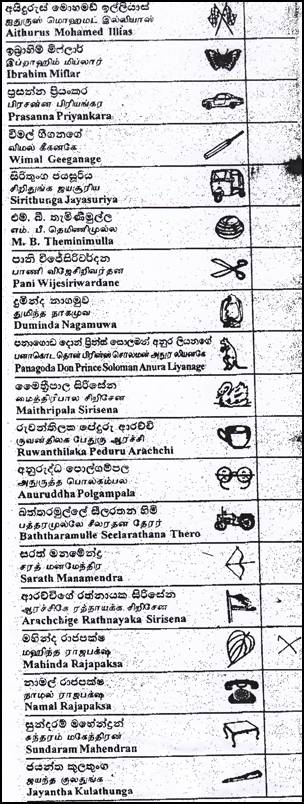 අයිදුරුස් මොහමඩ් ඉල්ලියාස්
ஐதுருஸ் மொஹமட் இல்லியாஸ்
Aithurus Mohamed Illias
ඉබ්‍රාහිම් මිෆ්ලාර්
இப்றாஹிம் மிப்லார்
Ibrahim Miflar
ප්‍රසන්න ප්‍රියංකර
பிரசன்ன பிரியங்கர
Prasanna Priyankara
විමල් ගීගනගේ
விமல் கீகனகே
Wimal Geeganage
සිරිතුංග ජයසූරිය
சிறிதுங்க ஜயசூரிய
Sirithunga Jayasuriya
එම්. බී. තැමිණිමුල්ල
எம். பீ. தெமிணிமுல்ல
M. B. Theminimulla
පානි විජේසිරිවර්දන
பாணி விஜேசிறிவர்தன
Pani Wijesiriwardane
දුමින්ද නාගමුව
துமிந்த நாகமுவ
Duminda Nagamuwa
පනාගොඩ දොන් ප්‍රින්ස් සොලමන් අනුර ලියනගේ
பனாகொட தொன் பிரின்ஸ் சொலமன் அநுர லியனகே
Panagoda Don Prince Soloman Anura Liyanage
මෛත්‍රීපාල සිරිසේන
மைத்திரிபால சிறிசேன
Maithripala Sirisena
රුවන්තිලක පේදුරු ආරච්චි
ருவன்திலக பேதுரு ஆரச்சி
Ruwanthilaka Peduru Arachchi
අනුරුද්ධ පොල්ගම්පල
அநுருத்த பொல்கம்பல
Anuruddha Polgampala
බත්තරමුල්ලේ සීලරතන හිමි
பத்தரமுல்லே சீலரதன தேரர்
Baththaramulle Seelarathana Thero
සරත් මනමේන්ද්‍ර
சரத் மனமேந்திர
Sarath Manamendra
ආරච්චිගේ රත්නායක සිරිසේන
ஆரச்சிகே ரத்நாயக்க சிறிசேன
Arachchige Rathnayaka Sirisena
මහින්ද රාජපක්ෂ
மஹிந்த ராஜபக்ஷ
Mahinda Rajapaksa
නාමල් රාජපක්ෂ
நாமல் ராஜபக்ஷ
Namal Rajapaksa
සුන්දරම් මහේන්ද්‍රන්
சுந்தரம் மகேந்திரன்
Sundaram Mahendran
ජයන්ත කුලතුංග
ஜயந்த குலதுங்க
Jayantha Kulathunga